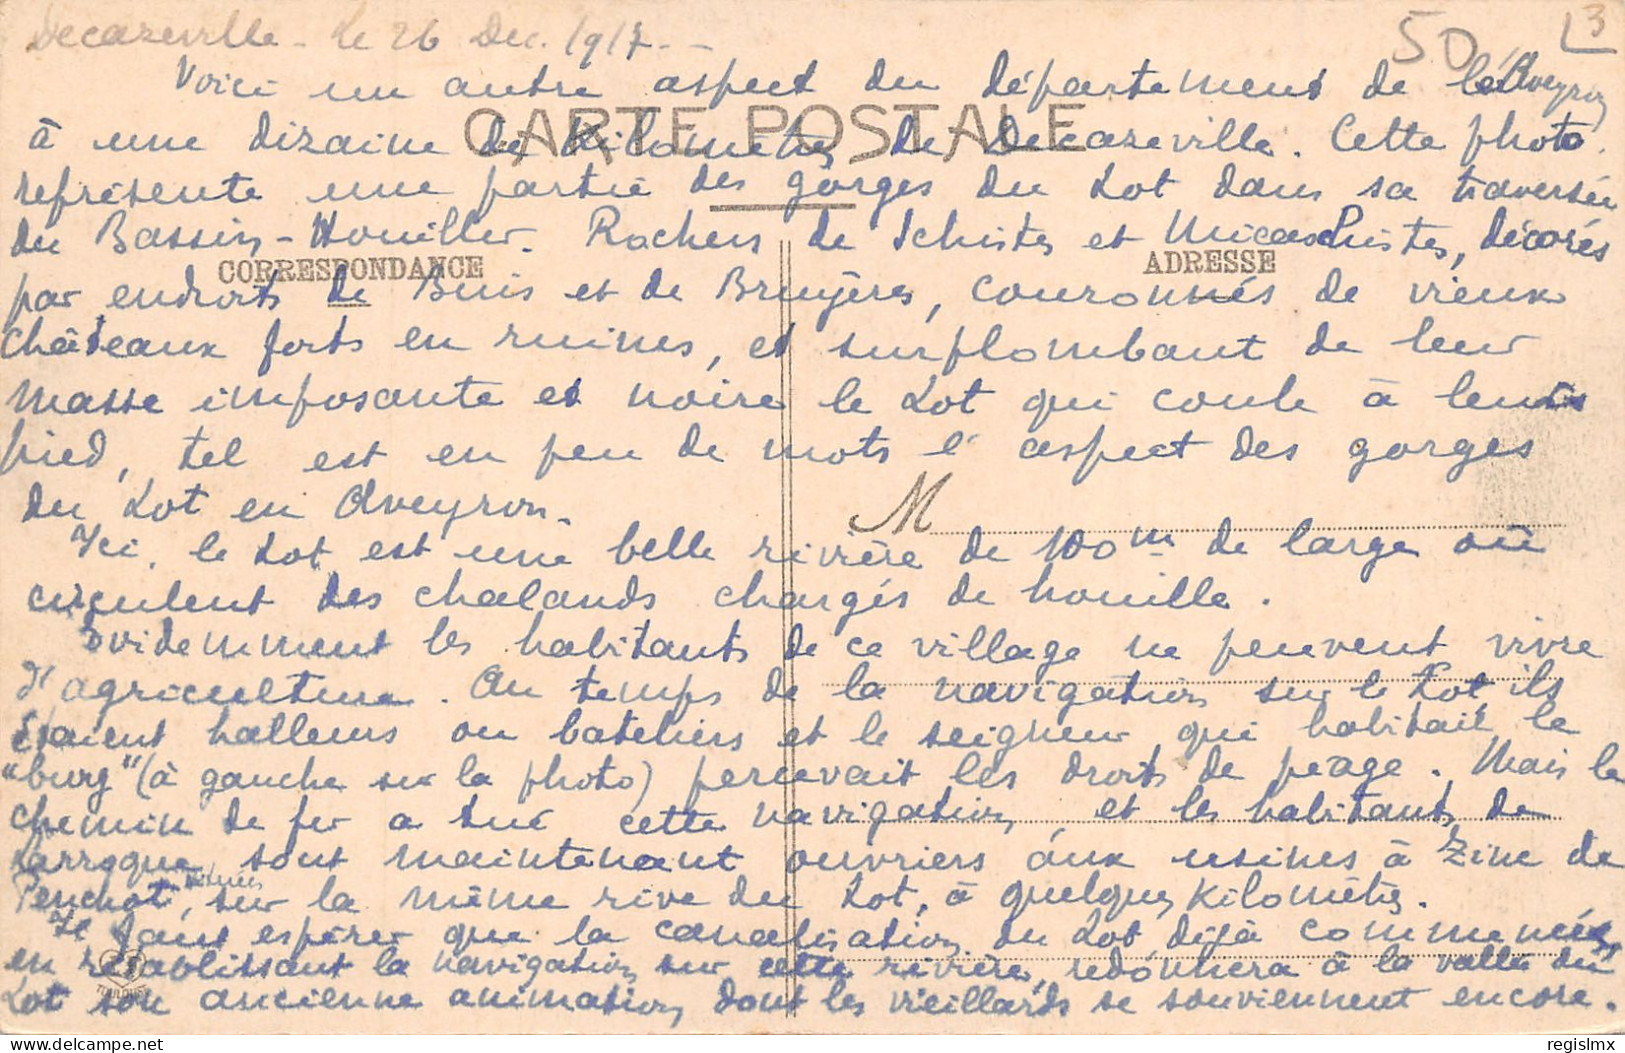 Decazeville - Le 26 Dec. 1917 -
50
L3
Voici un autre aspect du département de l'Aveyron
CARTE POSTALE
à une dizaine de Kilomètres de Decazeville. Cette photo
représente une partie des gorges du Lot dans sa traversée
du Bassin-Houiller. Rochers de Schistes et Micaschistes, décorés
CORRESPONDANCE
ADRESSE
par endroits de Buis et de Bruyères, couronnés de vieux
châteaux forts en ruines, et surplombant de leur
masse imposante et noire le Lot qui coule à leurs
pied, tel est en peu de mots l'aspect des gorges
du Lot en Aveyron.
M
Ici, le Lot est une belle rivière de 100m de large où
circulent des chalands chargés de houille.
Evidemment les habitants de ce village ne peuvent vivre
d'agriculture. Au temps de la navigation sur le Lot, ils
étaient halleurs ou bateliers et le seigneur qui habitait le
"burg" (à gauche sur la photo) percevait les droits de péage. Mais le
chemin de fer a tué cette navigation, et les habitants de
Larroque sont maintenant ouvriers aux usines à Zinc de
Penchot, situées sur la même rive du Lot, à quelques Kilomètres.
Il faut espérer que la canalisation du Lot déjà commencée,
en rétablissant la navigation sur cette rivière, redonnera à la vallée du
TOULOUSE
Lot son ancienne animation dont les vieillards se souviennent encore.
regislmx
Delcampe.net